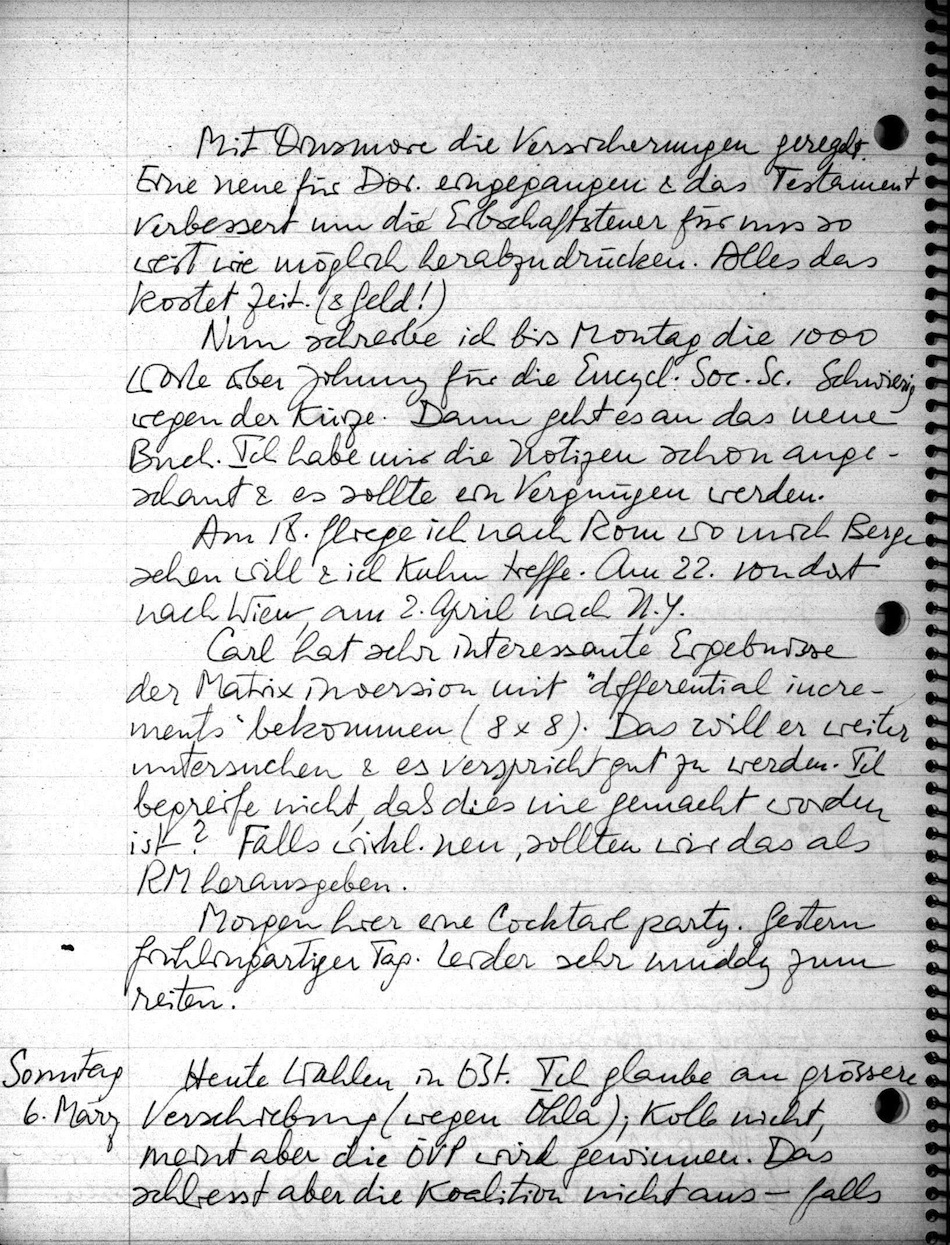 Mit Dinsmore die Versicherungen geregelt.
Eine neue für Dor. eingegangen & das Testament
verbessert um die Erbschaftsteuer für uns so
weit wie möglich herabzudrücken. Alles das
kostet Zeit. (& Geld!)
Nun schreibe ich bis Montag die 1000
Worte über für die Encycl. Soc. Sc. Schwierig
wegen der Kürze. Dann geht es an das neue
Buch. Ich habe mir die Notizen schon ange-
schaut & es sollte ein Vergnügen werden.
Am 18. fliege ich nach Rom wo mich Berge
sehen will & ich Kuhn treffe. Am 22. von dort
nach Wien, am 2. April nach N.Y.
Carl hat sehr interessante Ergebnisse
der Matrix inversion mit "differential incre-
ments" bekommen (8 x 8). Das will er weiter
untersuchen & es verspricht gut zu werden. Ich
begreife nicht, daß dies nie gemacht worden
ist? Falls wirkl. neu, sollten wir das als
RM herausgeben.
Morgen hier eine Cocktail party. Gestern
frühlingsartiger Tag. Leider sehr muddy zum
reiten.
Sonntag
6. März
Heute Wahlen in Öst. Ich glaube an grössere
Verschiebung (wegen Ohla); Kolb nicht,
meint aber die ÖVP wird gewinnen. Das
schliesst aber die Koalition nicht aus – falls